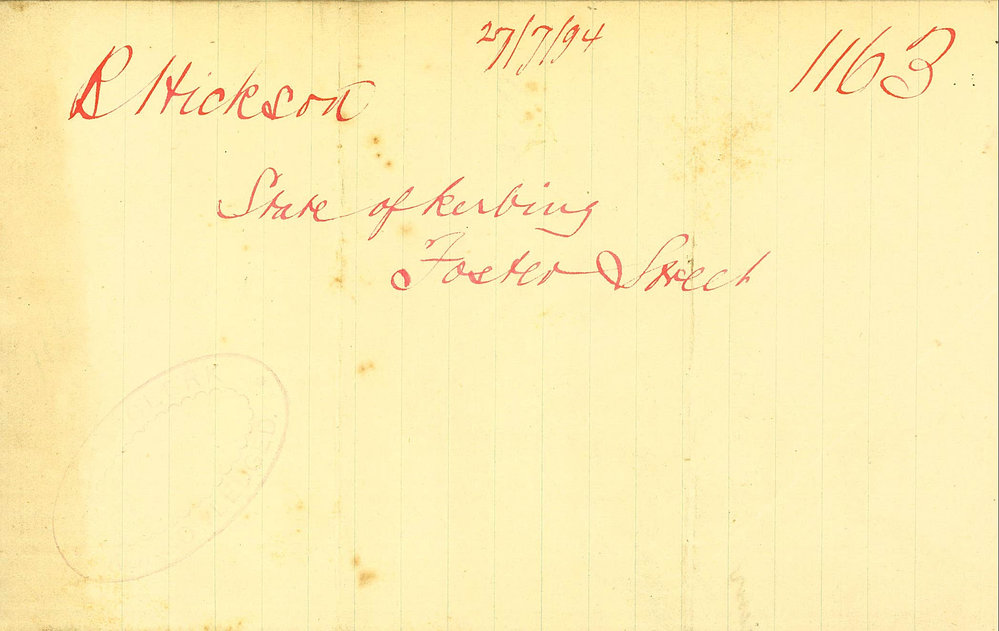 27/7/94
1163
R Hickson
State of kerbing
Foster Street